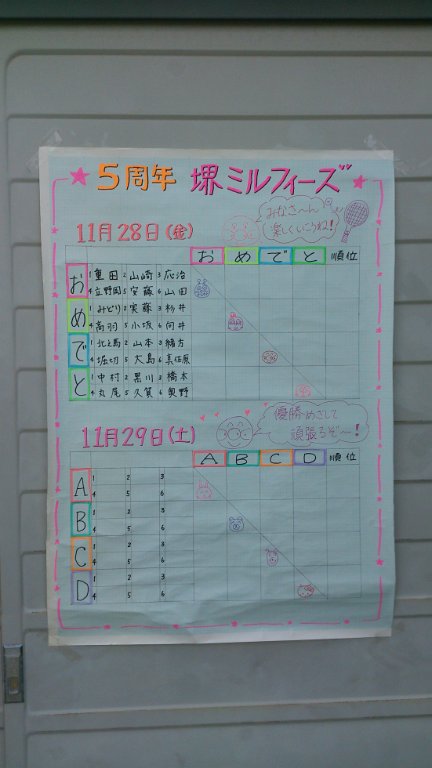 5周年 堺ミルフィーズ
みなさ〜ん
楽しくいこうね!
11月28日(金)
お め で と 順位
お 1 重田 2 山崎 3 応治
4 立野岡 5 安藤 6 山田
め 1 みどり 2 実藤 3 杉井
4 高羽 5 小坂 6 向井
で 1 北之島 2 山本 3 緒方
4 堀切 5 大島 6
と 1 中村 2 黒川 3 橋本
4 丸尾 5 久賀 6 奥野
優勝めざして
頑張るぞ〜!
11月29日(土)
A B C D 順位
A 1 2 3
4 5 6
B 1 2 3
4 5 6
C 1 2 3
4 5 6
D 1 2 3
4 5 6